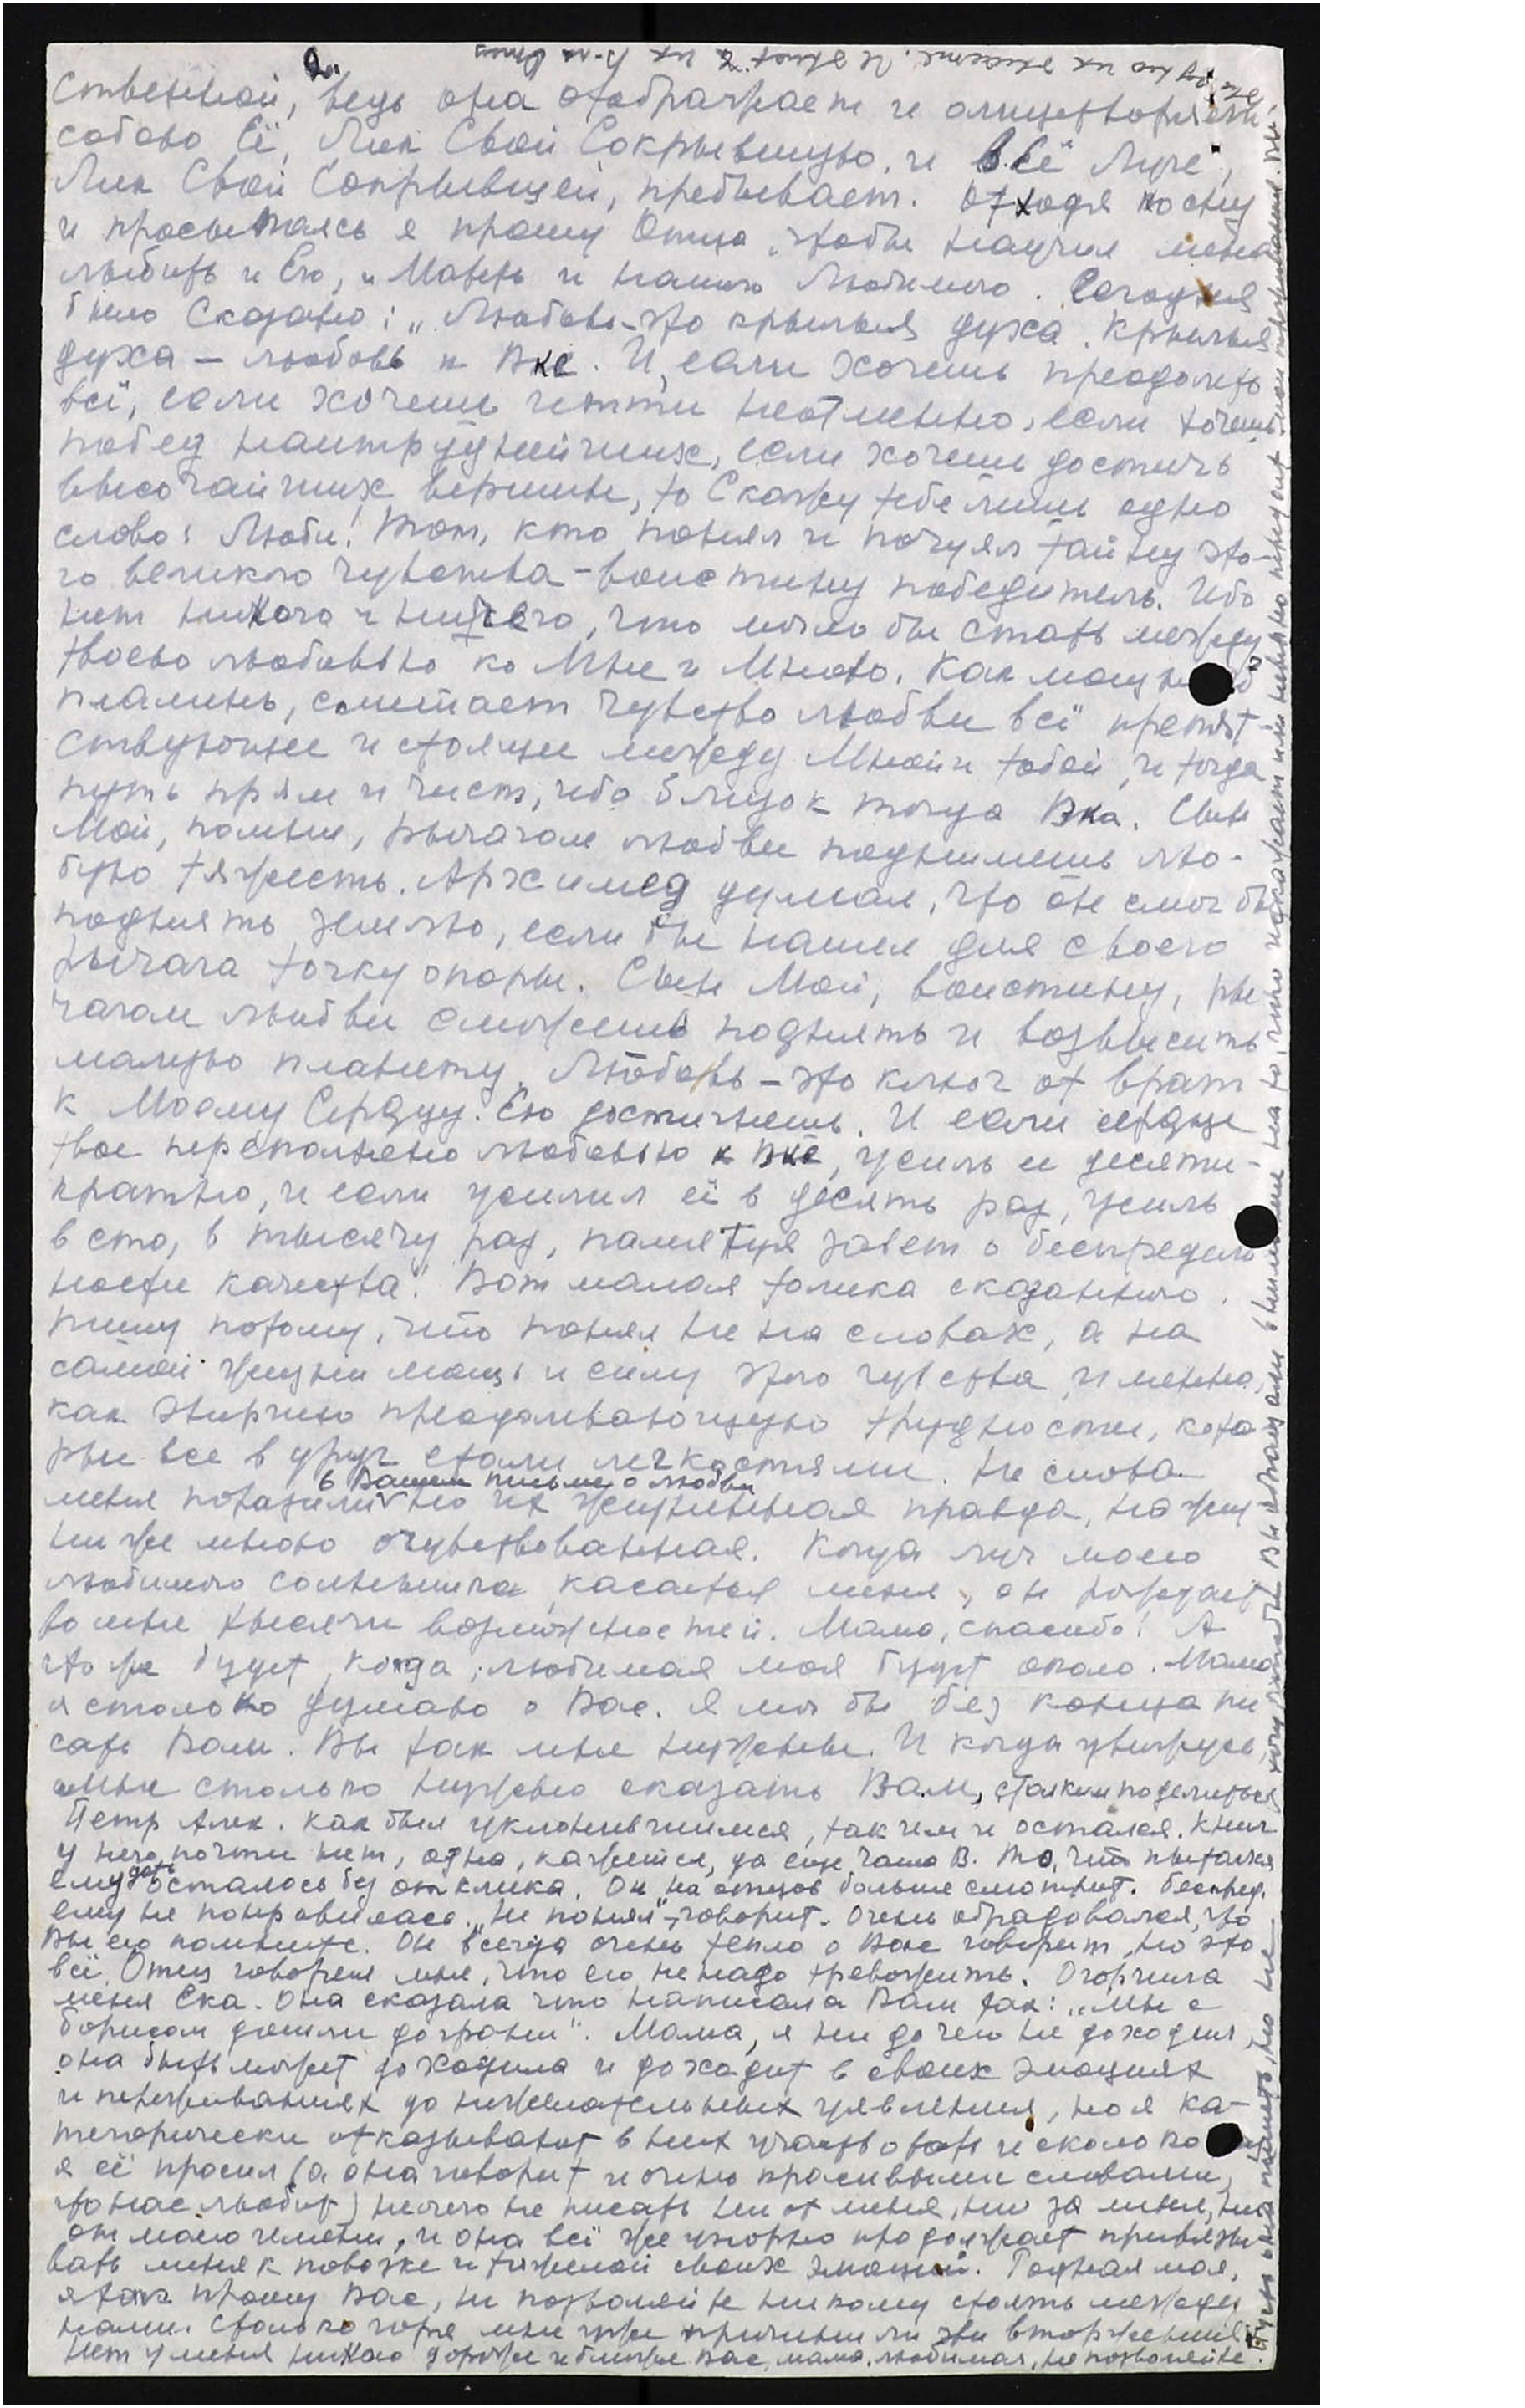 2.
ственной, ведь она отображает и олицетворяет
собою Её, Лик Свой Сокрывшую, и в Её Луче,
Лик Свой Сокрывшей, пребывает. Отходя ко сну
и просыпаясь я прошу Отца, чтобы научил меня
любить и Его, и Матерь и нашего Любимого. Сегодня
было Сказано: „Любовь-это крылья духа. Крылья
духа – любовь к Вке. И, если хочешь преодолеть
всё, если хочешь идти неотменно, если хочешь
побед наитруднейших, если хочешь достичь
высочайших вершин, то Скажу тебе лишь одно
слово: Люби! Тот, кто понял и почуял тайну это-
го великого чувства-воистину победитель. Ибо
нет никого и ничего, что могло бы стать между
твоею любовью ко Мне и Мною. Как мощный
пламень, сметает чувство любви всё препят-
ствующее и стоящее между Мной и тобой, и тогда
путь прям и чист, ибо близок тогда Вка. Сын
Мой, помни, рычагом любви поднимешь лю-
бую тяжесть. Архимед думал, что он смог бы
поднять землю, если бы нашел для своего
рычага точку опоры. Сын Мой, воистину, ры-
чагом любви сможешь поднять и возвысить
малую планету. Любовь – это ключ от врат
к Моему Сердцу. Ею достигнешь. И если сердце
твое переполнено любовью к Вке, усиль ее десяти-
кратно, и если усилил её в десять раз, усиль
в сто, в тысячу раз, памятуя завет о беспредель
ности качества". Вот малая толика сказанного.
Пишу потому, что понял не на словах, а на
самой жизни мощь и силу этого чувства, именно,
как энергию преодолевающую трудности, кото
рые все вдруг стали легкостями. Не слова
в Вашем письме о любви
меня поразили но их жизненная правда, на жиз
ни же мною очувствованная. Когда луч моего
любимого солнышка касается меня, он рождает
во мне тысячи возможностей. Мама, спасибо! А
что же будет, когда, любимая моя будет около. Мама
я столько думаю о Вас. Я мог бы без конца пи
сать Вам. Вы так мне нужны. И когда увижусь
мне столько нужно сказать Вам, столким поделиться
Петр Алек. как был уклонившимся, таким и остался. Книг
у него почти нет, одна, кажется, да еще Чаша В. То, что пытался
ему дать осталось без отклика. Он на отцов больше смотрит. Беспред.
ему не понравилась. „Не понял"-говорит. Очень обрадовался, что
Вы его помните. Он всегда очень тепло о Вас говорит, но это
всё. Отец говорил мне, что его не надо тревожить. Огорчила
меня Ека. Она сказала что написала Вам так: „Мы с
Борисом дошли до грани". Мама, я ни до чего не доходил,
она быть может доходила и доходит в своих эмоциях
и переживаниях до нежелательных явления, но я ка-
тегорически отказываюсь в них участвовать и сколько
я её просил (а она говорит и очень красивыми словами,
что нас любит) ничего не писать ни от меня, ни за меня, ни
от моего имени, и она всё же упорно продолжает привязы-
вать меня к повозке и тяжелой своих эмоций. Родная моя,
я так прошу Вас, не позволяйте никому стоять между
нами. Столько горя мне уже причинили эти вторжения!
Нет у меня никого дороже и ближе Вас, мама любимая, не позволяйте.
Пусть она пишет, но не